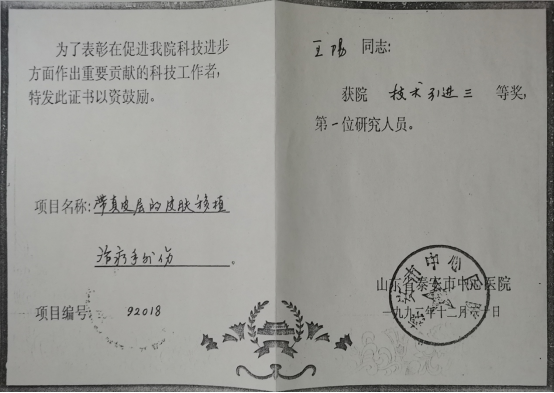 为了表彰在促进我院科技进步
方面作出重要贡献的科技工作者,
特发此证书以资鼓励。
项目名称:带真皮层的皮肤移植
治疗手外伤。
项目编号: 92018
王陽 同志:
获院 技术引进三 等奖,
第一位研究人员。
山东省泰安市中心医院
一九九二年十二月 十日